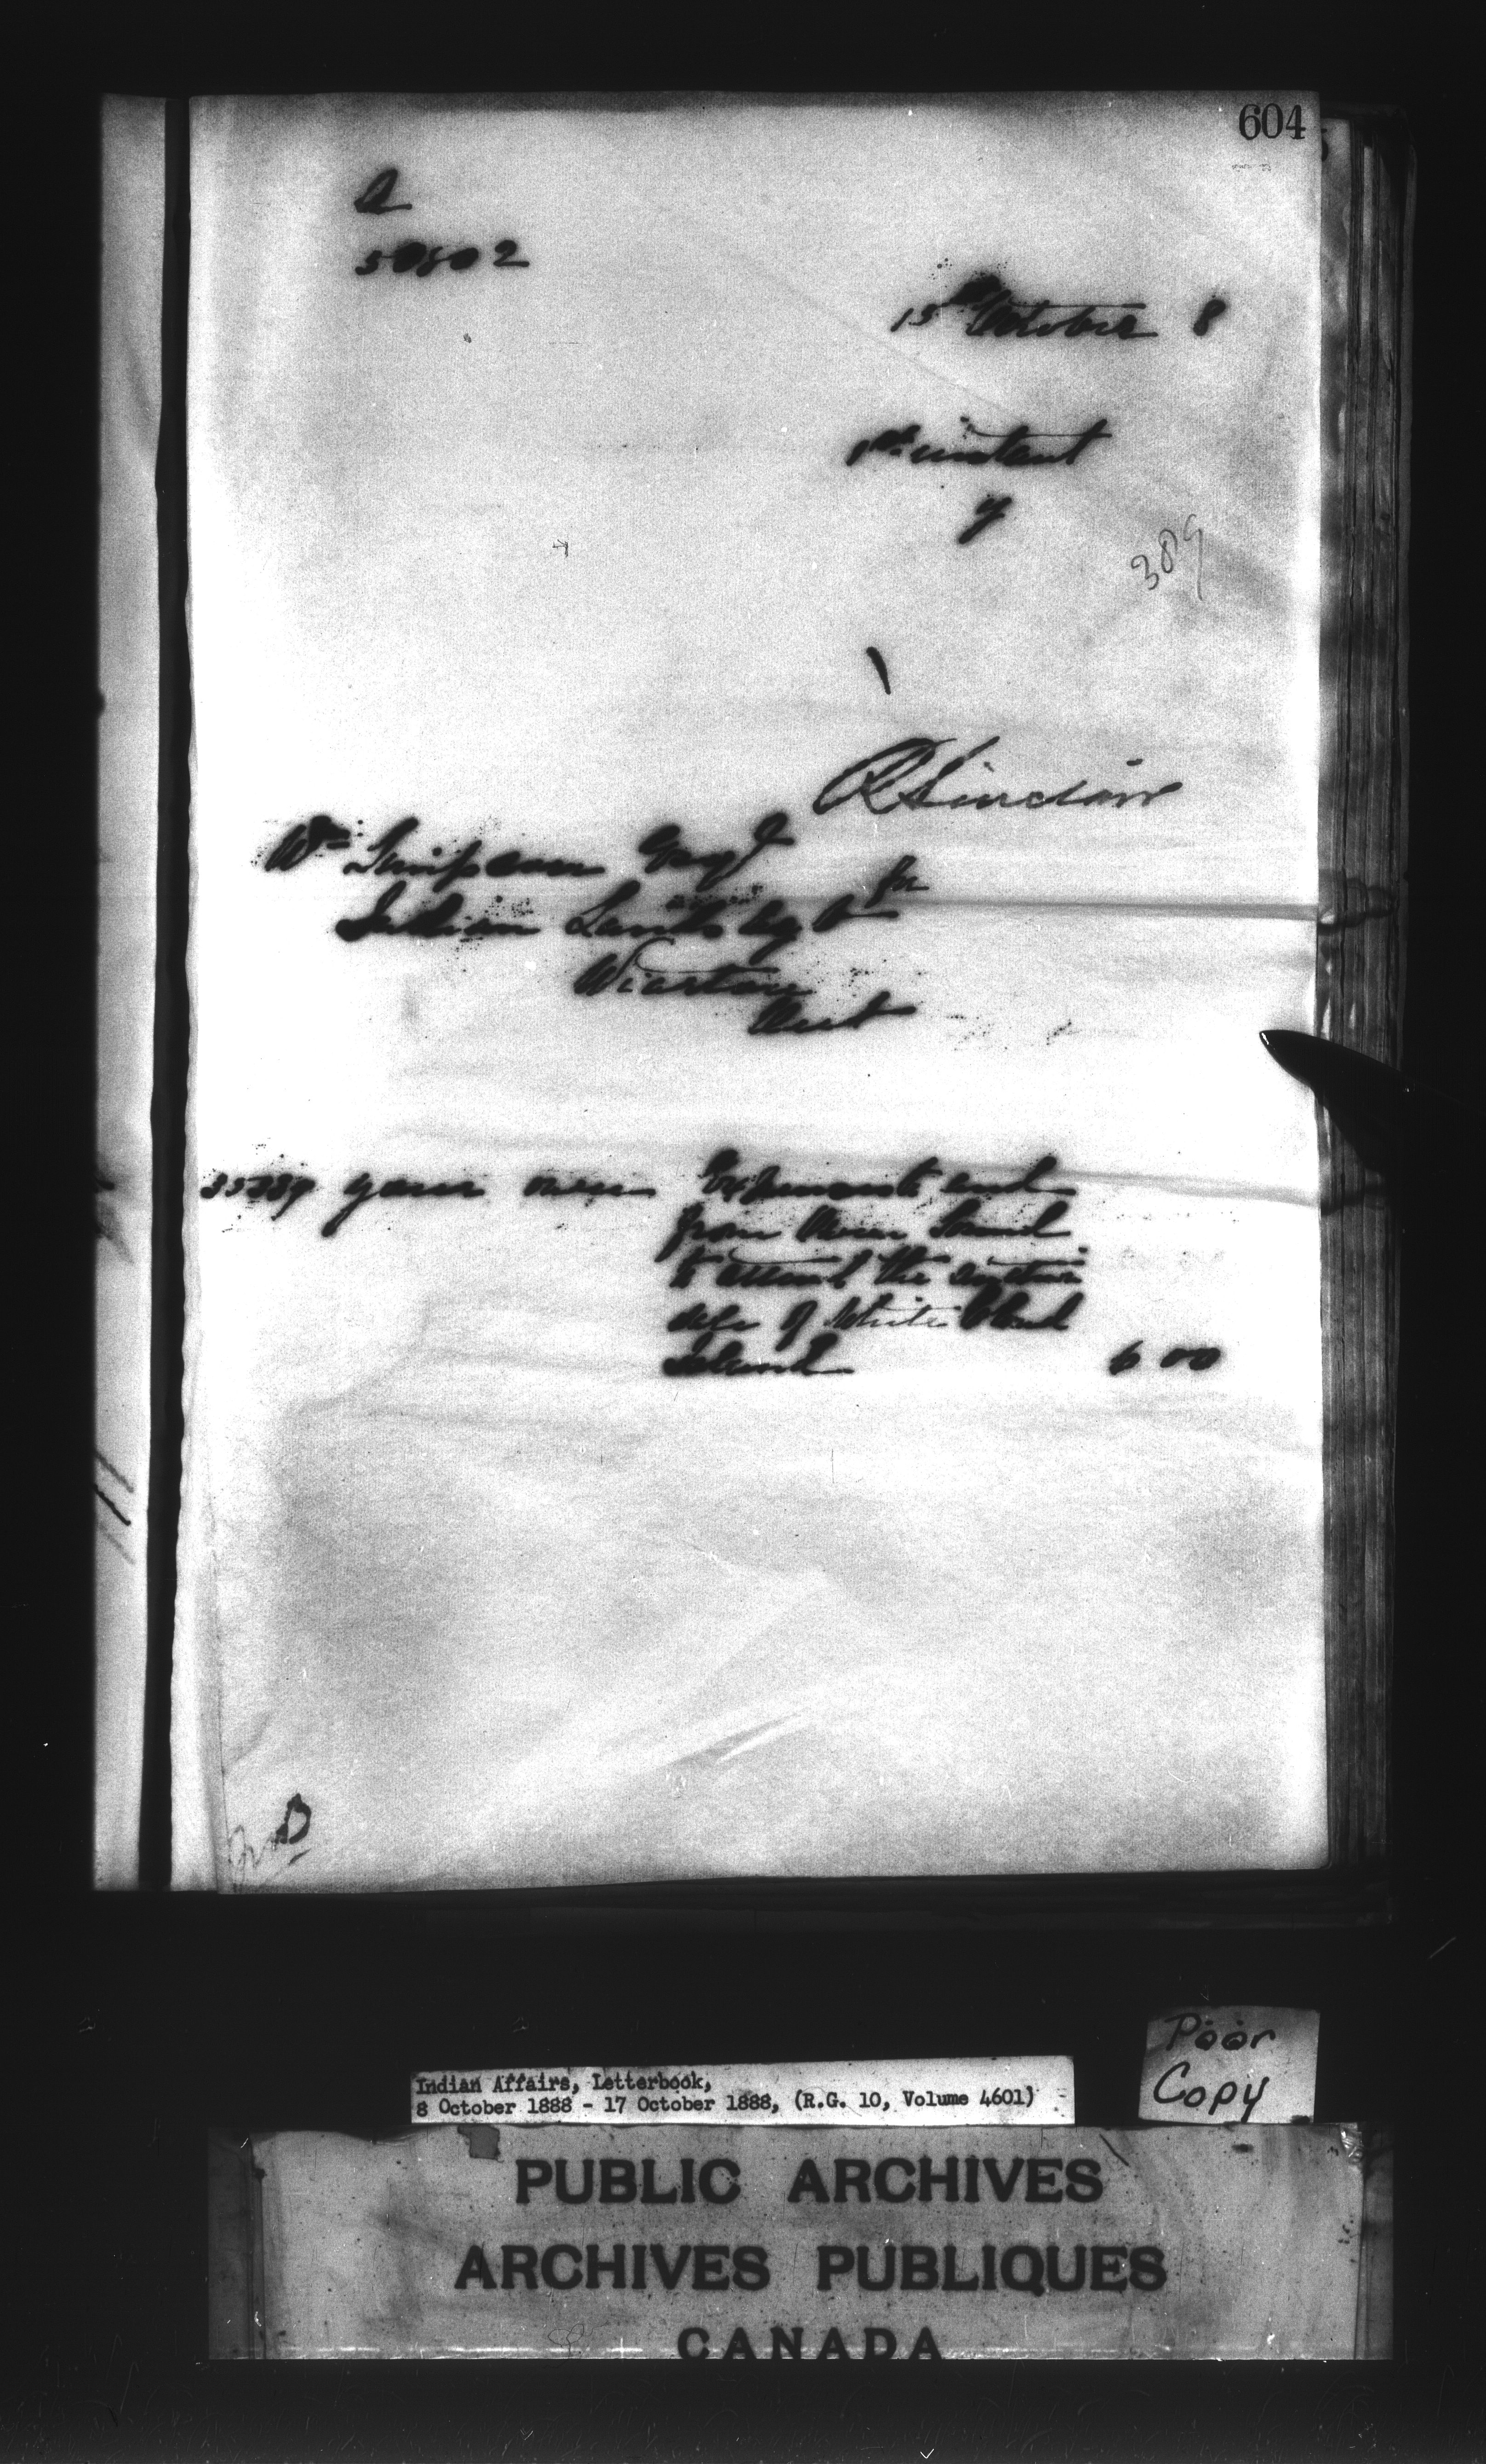 604
A
50802
15th October 8
1st instant
y
389
R Sinclair
Wm Simpson Esqr
Indian Lands Agt
Wiarton
Ont
35389 your own
from Owen Sound
to attend the auction
sale of White Cloud
Island 6 00
D
Indian Affairs, Letterbook,
8 October 1888 - 17 October 1888, (R.G. 10, Volume 4601)
Poor
Copy
PUBLIC ARCHIVES
ARCHIVES PUBLIQUES
CANADA